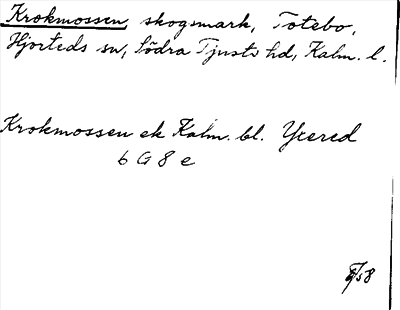 Krokmossen, skogsmark, Totebo,
Hjorteds sn, Södra Tjusts hd, Kalm. l.
Krokmossen ek Kalm. bl. Yxered
6 G 8 e